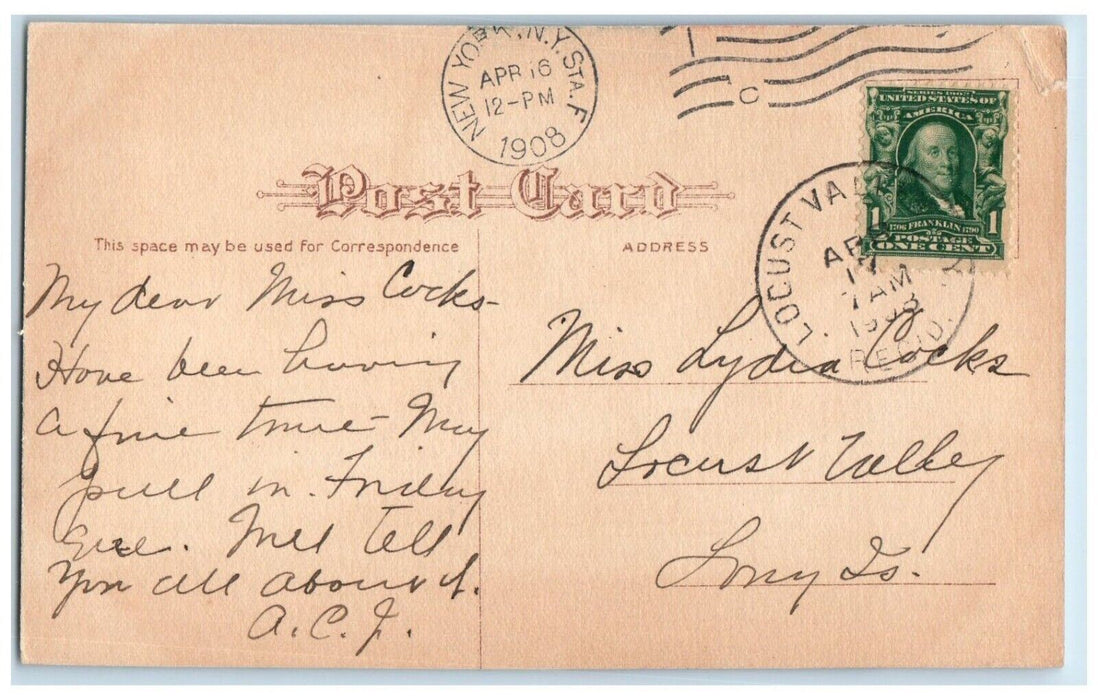 NEW YORK, N.Y. STA. F
APR 16
12-PM
1908
C
SERIES 1902
UNITED STATES OF
AMERICA
1706 FRANKLIN 1790
1 1
POSTAGE
ONE CENT
LOCUST VALLEY
APR
7 AM
1908
REC'D.
Post Card
This space may be used for Correspondence
ADDRESS
My dear Miss Cocks-
Have been having
a fine time - May
pull in Friday
Eve. Will tell
you all about it.
A.C.J.
Miss Lydia Cocks
Locust Valley
Long Is.